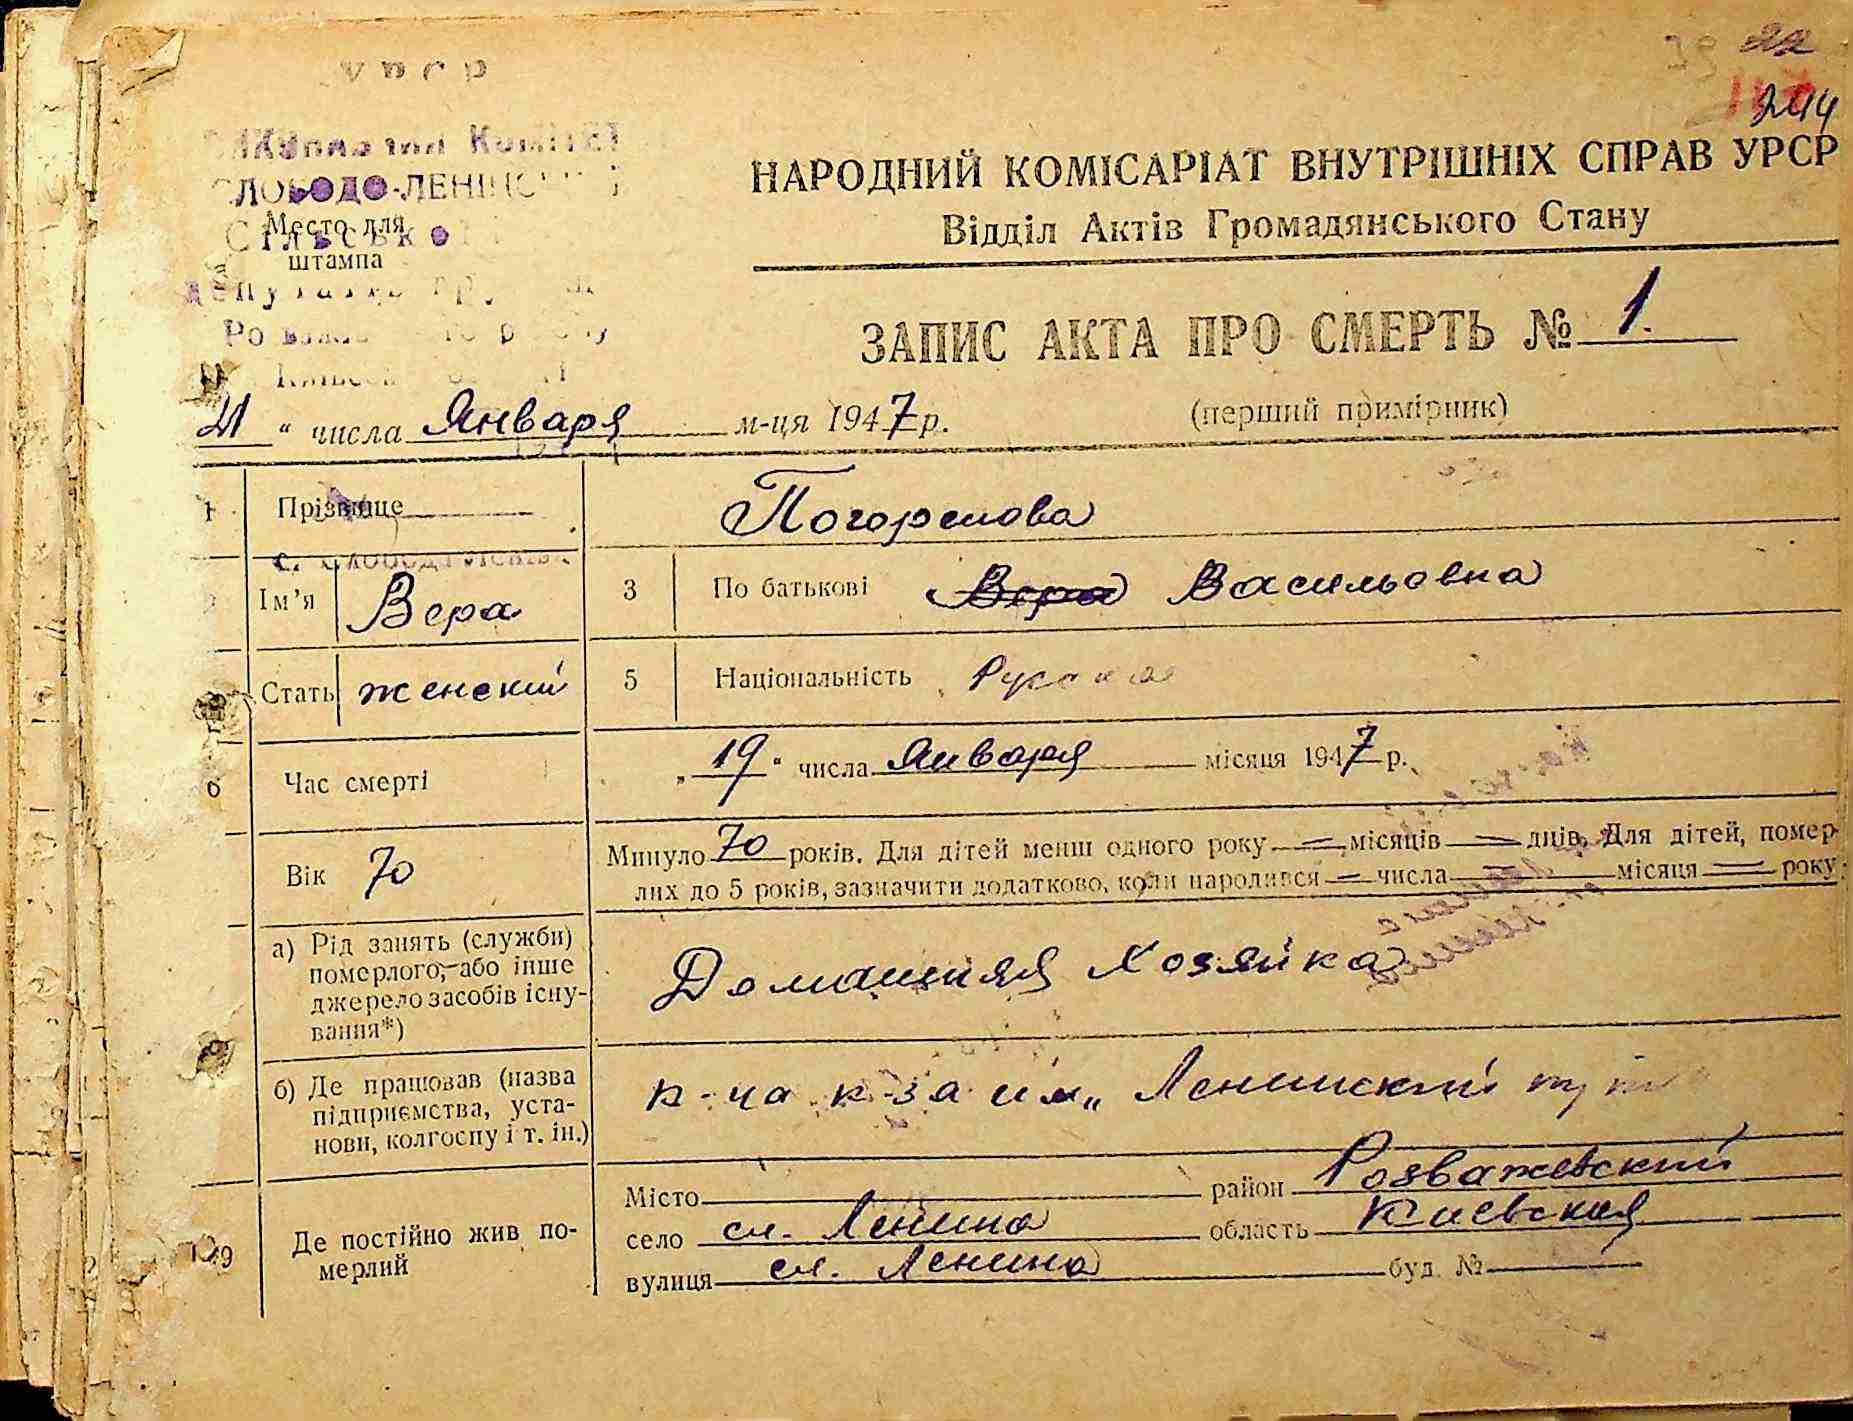 УРСР
22
244
Комітет
СЛОБОДО-ЛЕНІНС
Место для
штампа
НАРОДНИЙ КОМІСАРІАТ ВНУТРІШНІХ СПРАВ УРСР
Відділ Актів Громадянського Стану
ЗАПИС АКТА ПРО СМЕРТЬ № 1.
21 " числа Января м-ця 1947 р. (перший примірник)
1 Прізвище Погорелова
Ім'я Вера 3 По батькові Вера Васильовна
Стать женский 5 Національність Руская
6 Час смерті „ 19 " числа Января місяця 1947 р.
Вік 70 Минуло 70 років. Для дітей менш одного року — місяців — днів. Для дітей, помер-
лих до 5 років, зазначити додатково, коли народився — числа місяця — року
а) Рід занять (служби)
померлого, або інше
джерело засобів існу-
вання*)
Домашняя Хозяйка
б) Де працював (назва
підприємства, уста-
нови, колгоспу і т. ін.)
к-за им „ Ленинский путь
Де постійно жив по-
мерлий
Місто район Розважевский
село сл. Ленина область Киевская
вулиця сл. Ленина буд. №